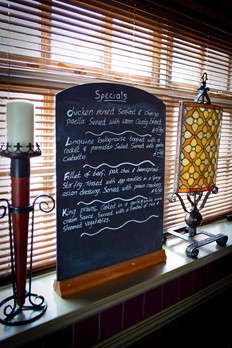 Specials
Chicken mixed Seafood & Chorizo
paella. Served with warm Crusty bread
Linguine bolognaise topped with a
rocket & parmesan Salad. Served with
ciabatta.
Fillet of beef, pak choi & beansprout
Stir fry, tossed with egg noodles in a
asian dressing. Served with prawn crackers
King prawns, Cooked in a garlic & white
cream Sauce. Served with a timbale of rice &
Steamed vegetables.